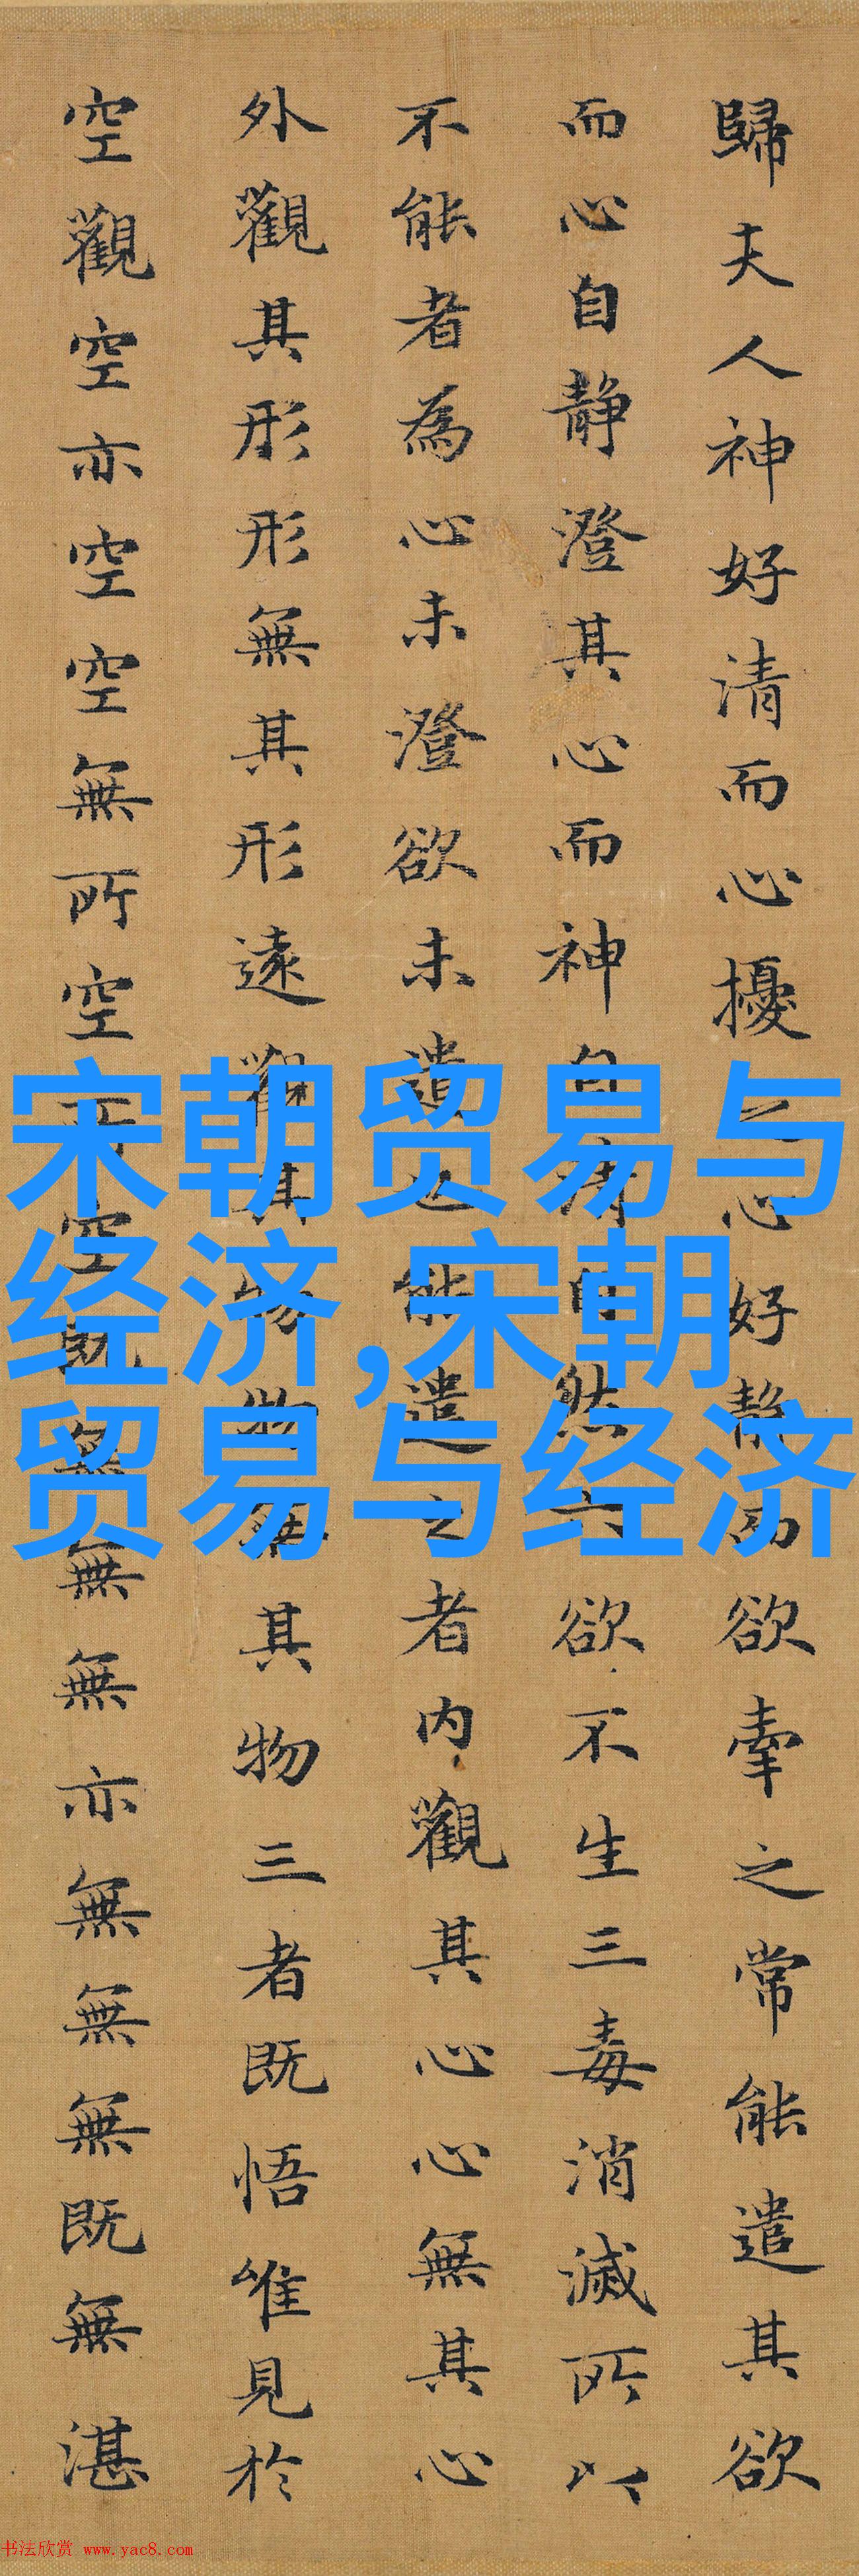 歸夫人神好清而心擾之心好靜而欲牽之常能遣其欲
而心自靜澄其心而神自清自然六欲不生三毒消滅所以
不能者為心未澄欲未遣也能遣之者内觀其心心無其心
外觀其形形無其形遠觀其物物無其物三者既悟唯見於
空觀空亦空空無所空所空既無無無亦無無無既無湛
宋朝贸易与
经济,宋朝
贸易与经济
书法欣赏 www.yac8.com